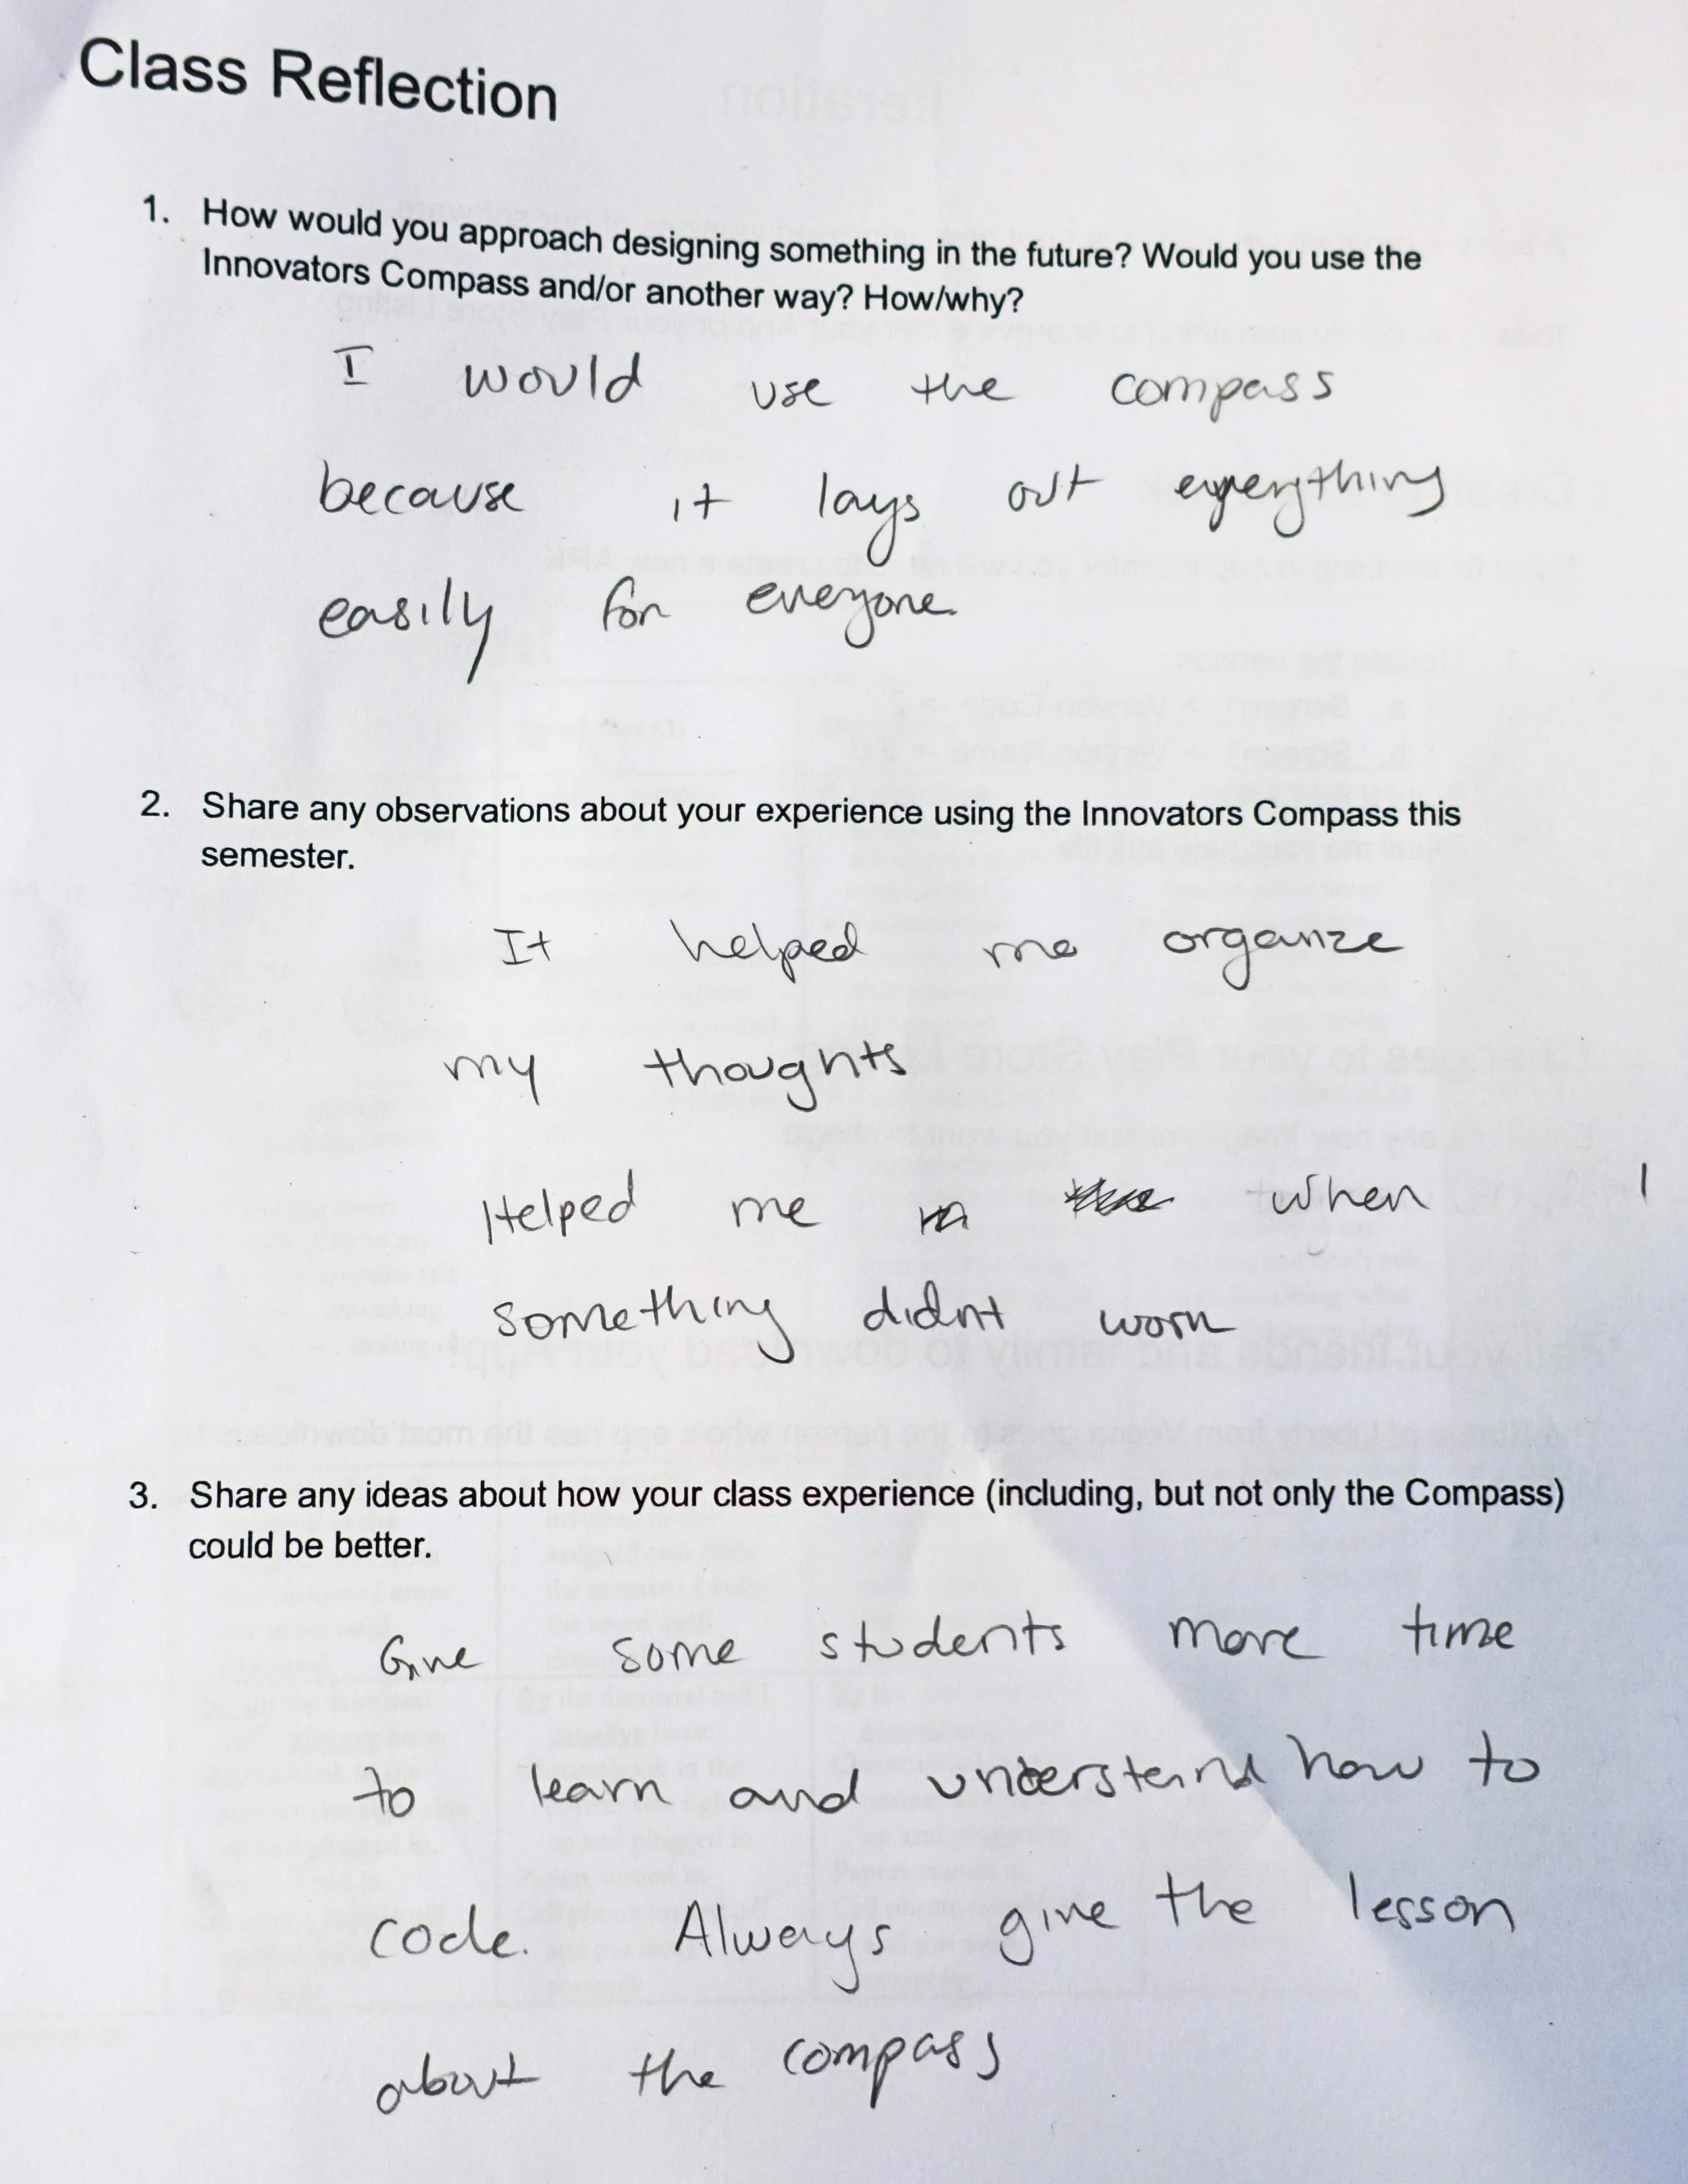 Class Reflection
1. How would you approach designing something in the future? Would you use the
Innovators Compass and/or another way? How/why?
I would use the compass
because it lays out everything
easily for everyone.
2. Share any observations about your experience using the Innovators Compass this
semester.
It helped me organze
my thoughts
Helped me when I
something didnt work
3. Share any ideas about how your class experience (including, but not only the Compass)
could be better.
Give some students more time
to learn and understand how to
code. Always give the lesson
about the compass